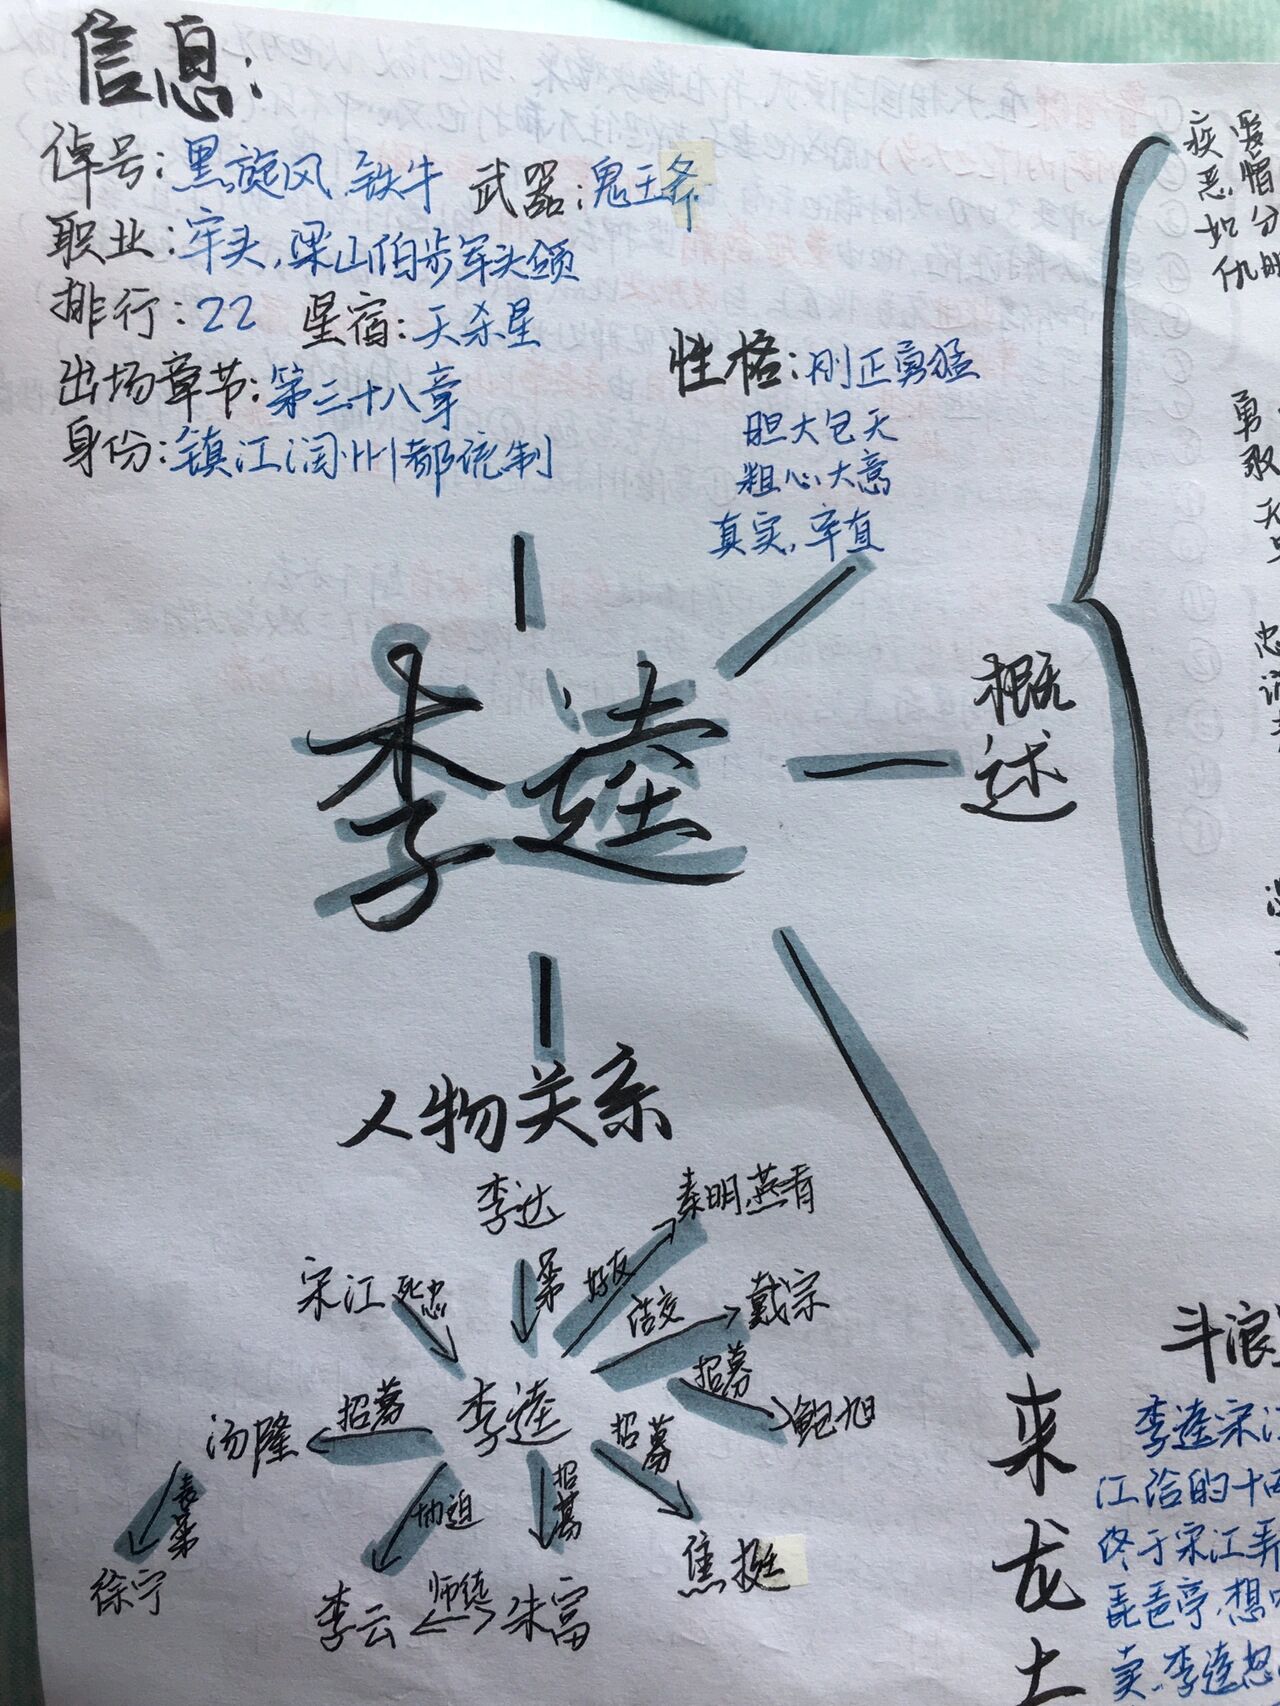 信息:
绰号:黑旋风,铁牛 武器:鬼王斧
职业:牢头,梁山伯步军头领
排行:22 星宿:天杀星
出场章节:第三十八章
身份:镇江润州都统制
性格:刚正勇猛
胆大包天
粗心大意
真实,率直
李逵
概述
疾恶如仇
爱憎分明
勇
敢
天
忠
人物关系
李达
秦明,燕青
宋江 死忠
弟
好友
结交
戴宗
招募
鲍旭
李逵
招募
汤隆
招募
焦挺
表弟
徐宁
胁迫
招募
李云 师徒 朱富
来龙
斗浪
李逵宋江
江洽的十
终于宋江弄
琵琶亭,想
卖.李逵怒